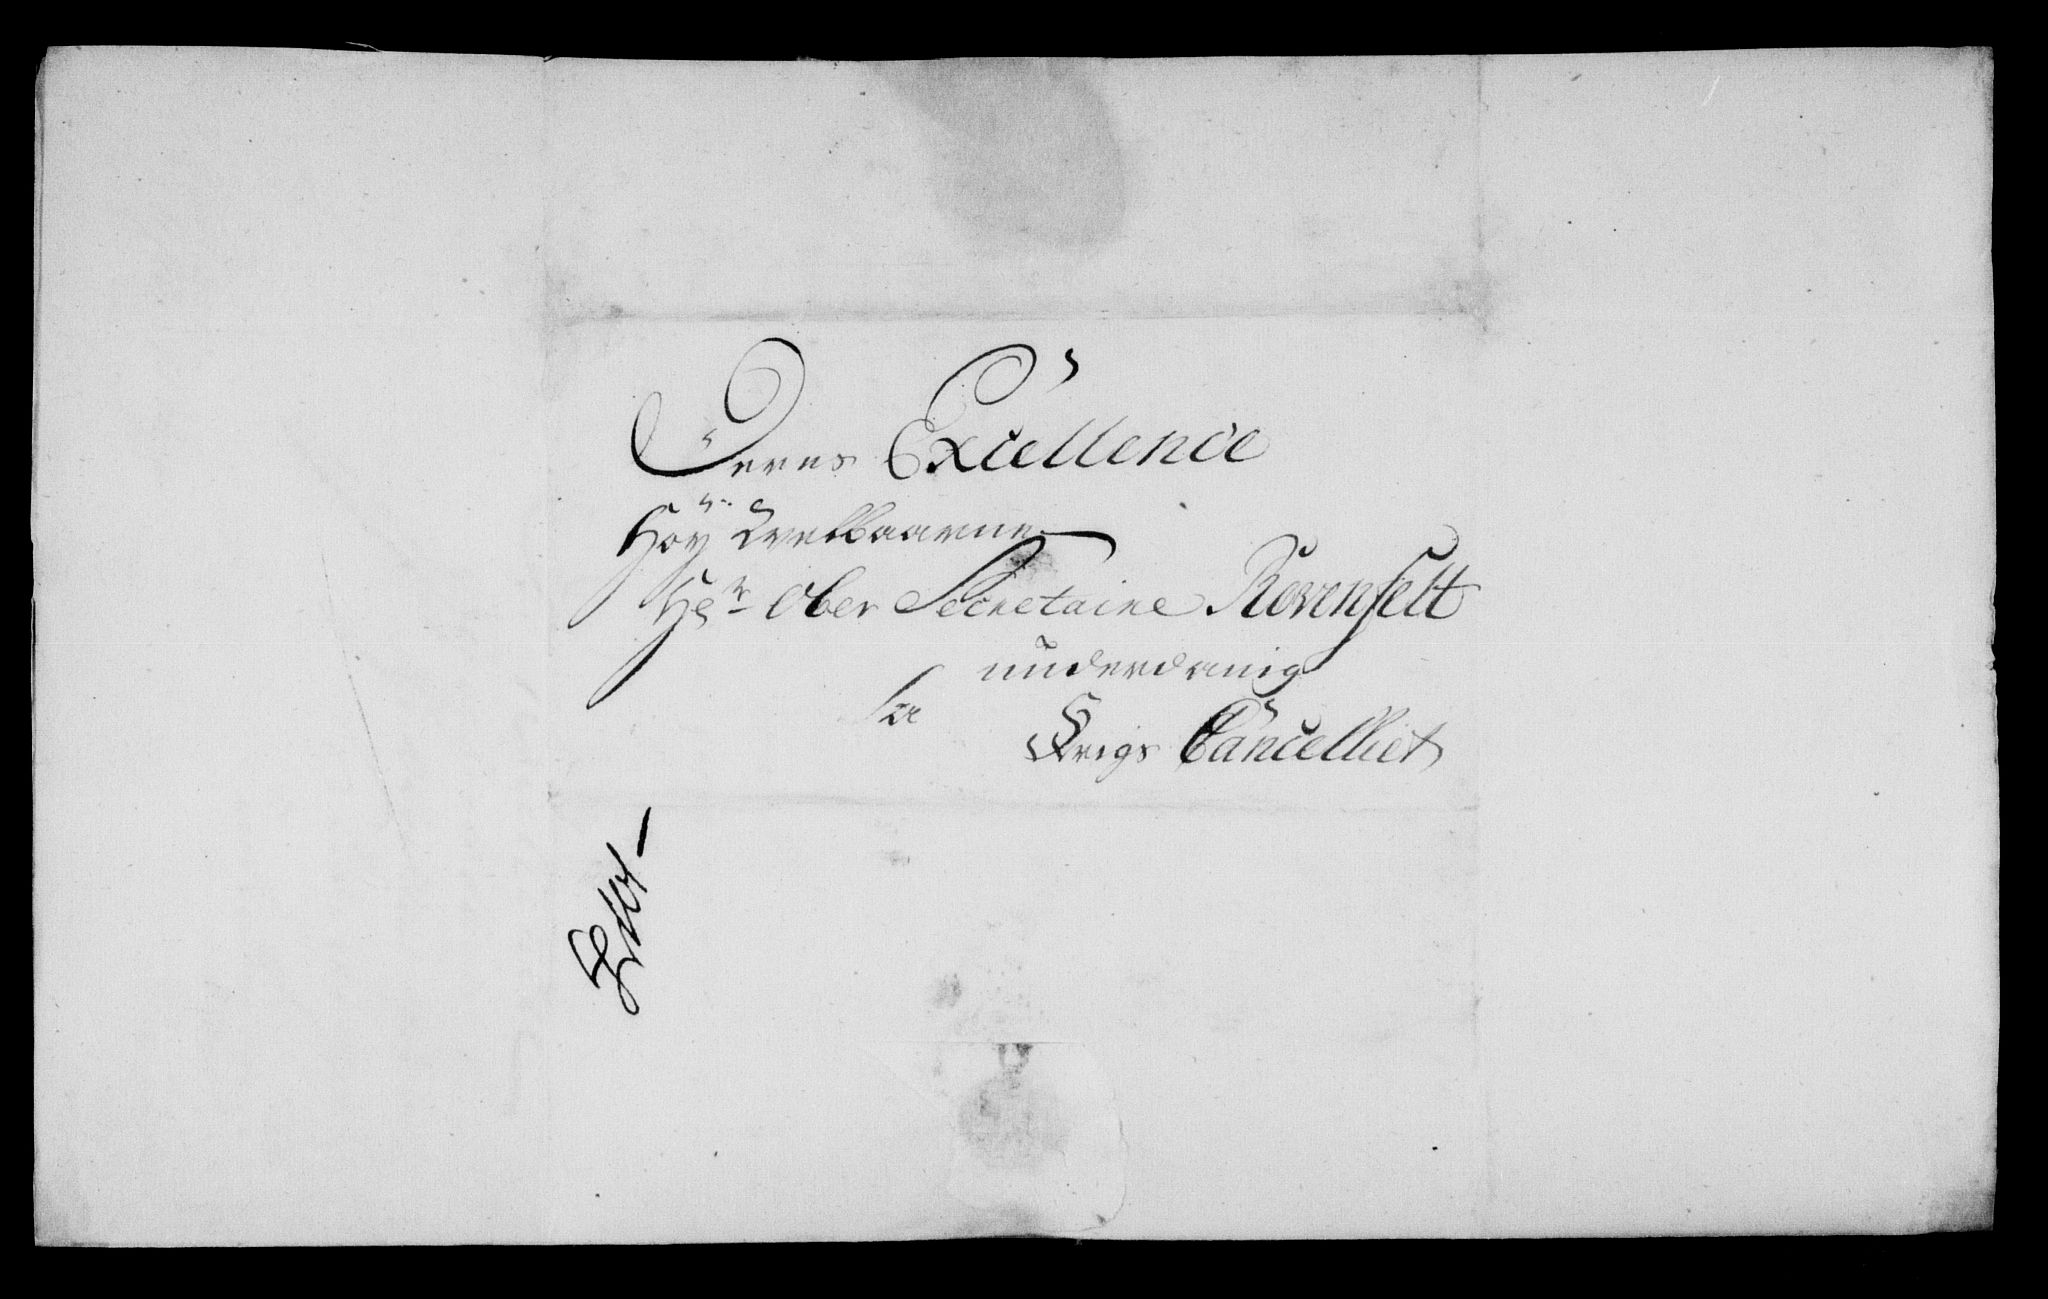 Deres Excellence
Höy Velbaarne
Hr Ober Secretaire Revenfelt
underdanig
Krigs Cancelliet